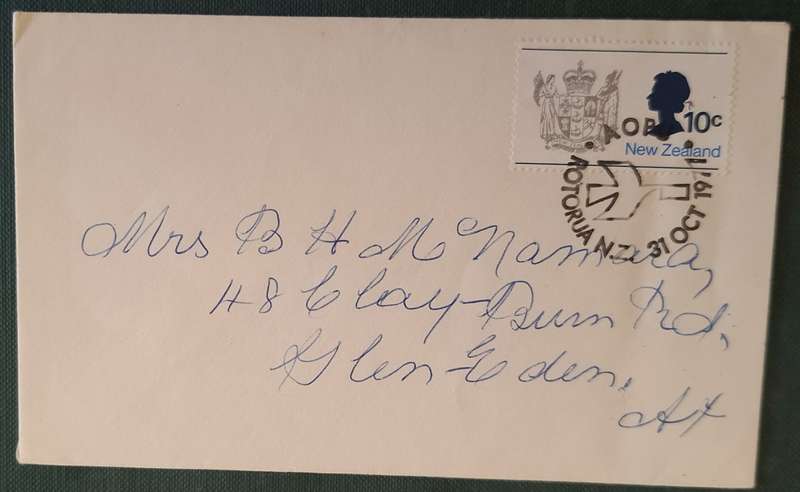 10c
New Zealand
AOPA
ROTORUA N.Z. 31 OCT 1971
Mrs B H McNamara,
48 Clay-Burn Rd,
Glen-Eden,